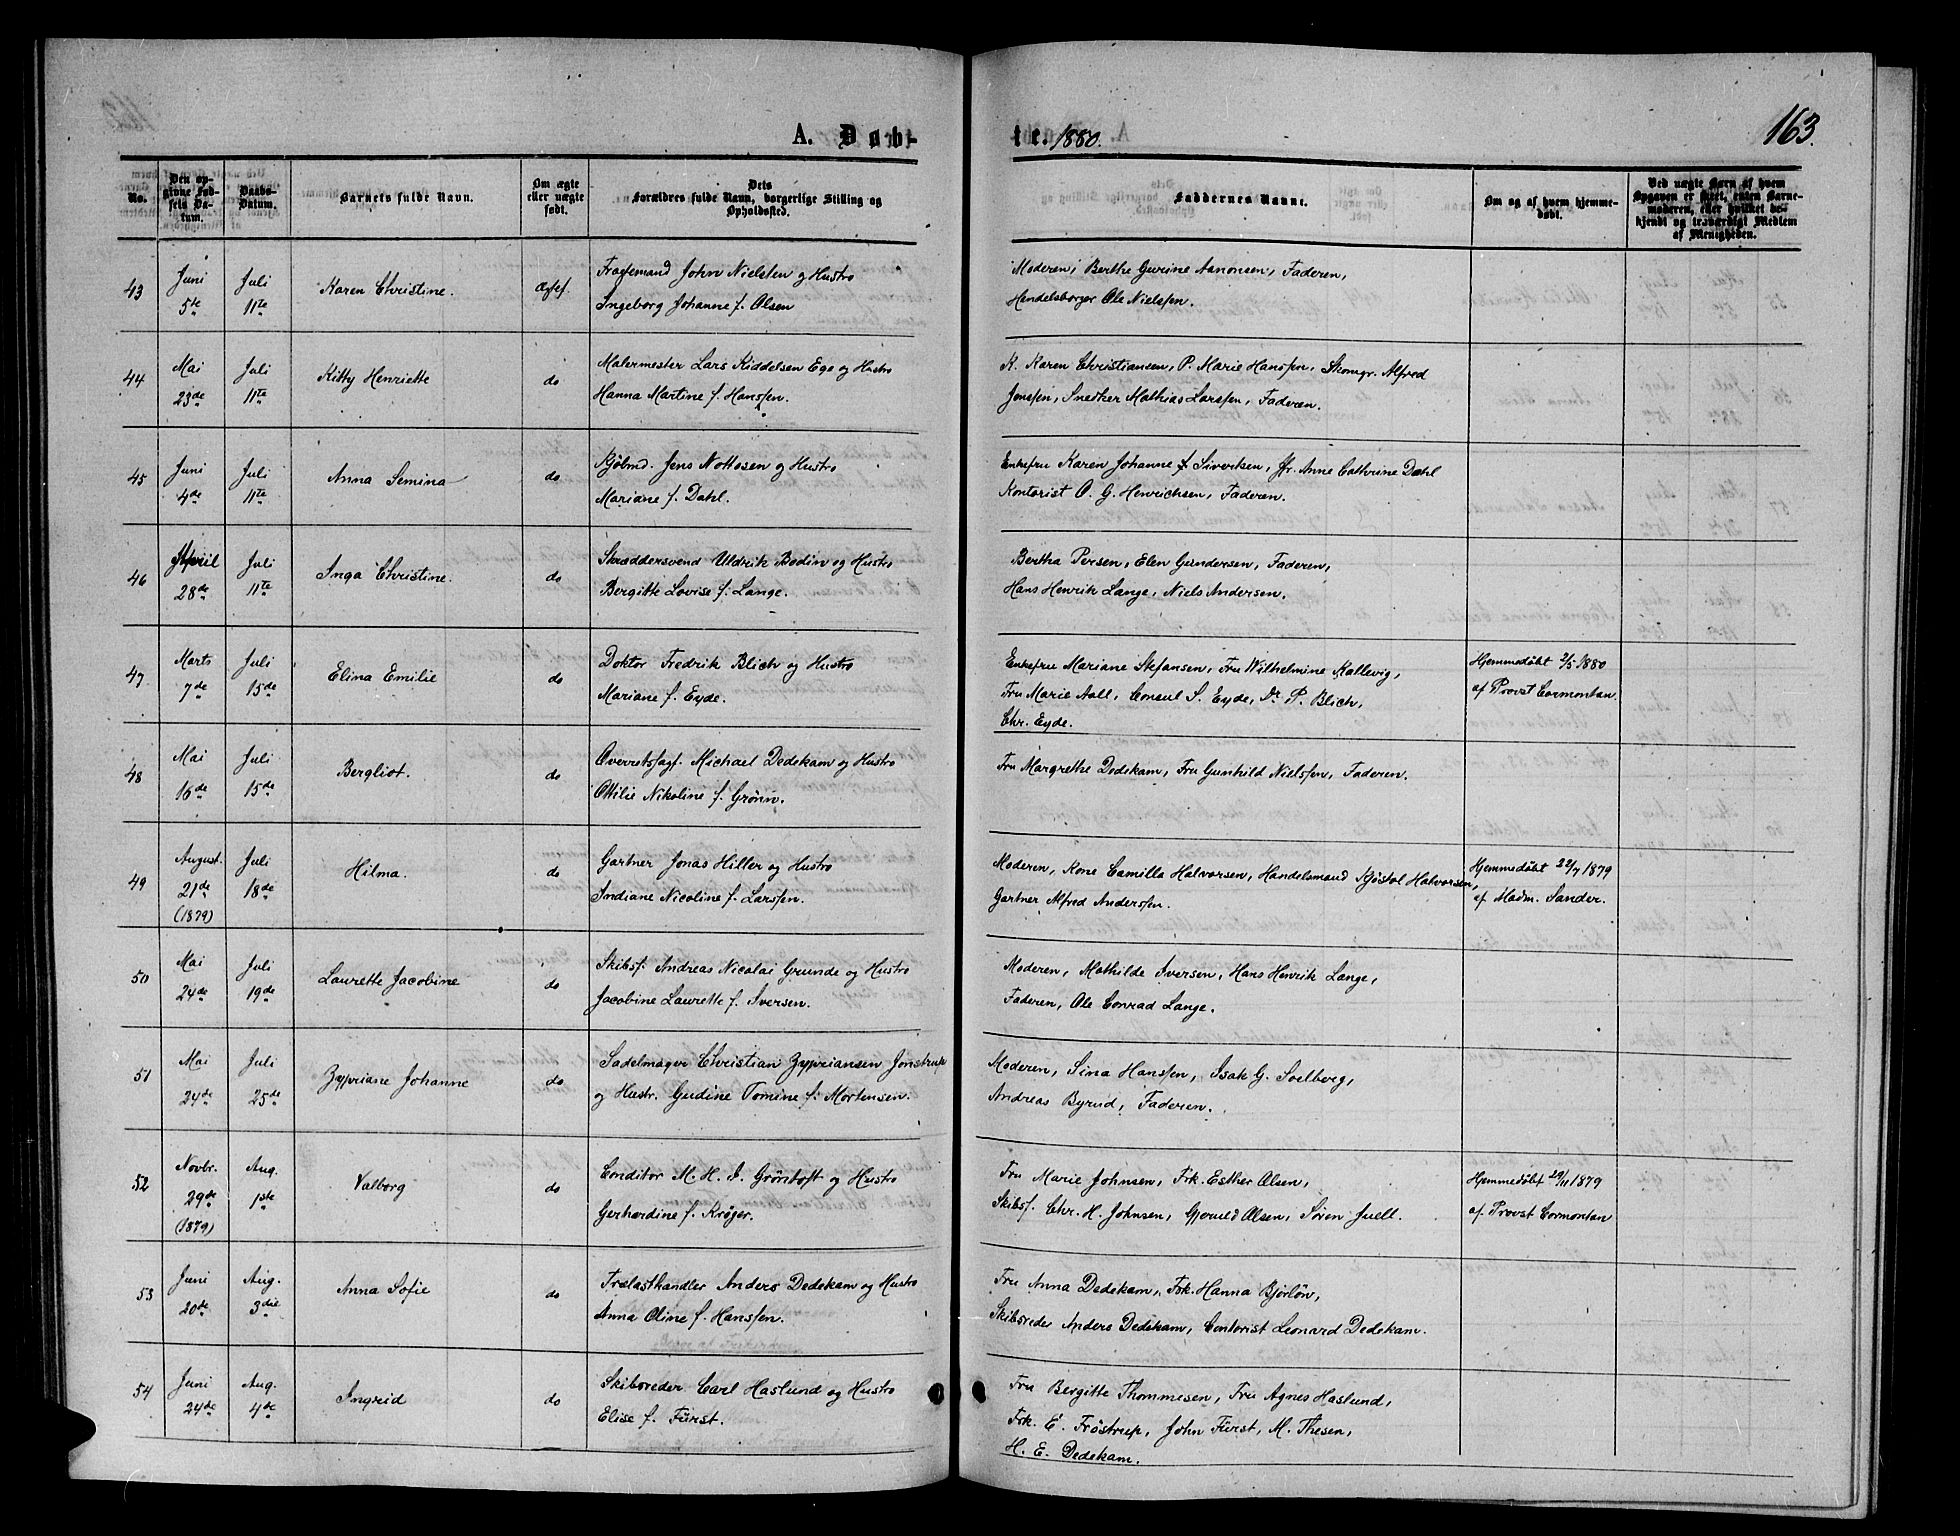 163.
A. Døbte. 1880.
No.
Den opgivne Fødsels Datum.
Daabs-Datum.
Barnets fulde Navn.
Om ægte eller uægte født.
Dets Forældres fulde Navn, borgerlige Stilling og Opholdssted.
Faddernes Navne.
Om og af hvem hjemmedøbt.
Ved uægte Børn af hvem Opgaven er skeet, enten Barnemoderen, eller hvilket bekjendt og troværdigt Medlem af Menigheden.
43 Juni 5te Juli 11te Karen Christine. Ægtef.
John Nielsen og Hustro
Ingeborg Johanne f. Olsen
Moderen, Berthe Gurine Aanonsen, Faderen,
Handelsborger Ole Nielsen.
44 Mai 23de Juli 11te Kitty Henriette do
Malermester Lars Kiddelsen Ege og Hustro
Hanna Martine f. Hanssen.
K. Karen Christiansen, P. Marie Hanssen, Skomgr. Alfred
Jenssen, Snedker Mathias Larssen, Faderen.
45 Juni 4de Juli 11te Anna Semina do
Kjøbmd. Jens Nottosen og Hustro
Mariane f. Dahl.
Enkefru Karen Johanne f Sivertsen, Fr. Anne Cathrine Dahl
Kontorist O. G. Henrichsen, Faderen.
46 April 28de Juli 11te Inga Christine. do
Skræddersvend Uldrik Bodin og Hustro
Bergitte Lovise f. Lange.
Bertha Persen, Elen Gundersen, Faderen,
Hans Henrik Lange, Niels Andersen.
47 Marts 7de Juli 15de Elina Emilie do
Doktor Fredrik Blich og Hustro
Mariane f. Eyde.
Enkefru Mariane Stefansen, Fru Wilhelmine Kallevig,
Fru Marie Aall, Consul S. Eyde, Dr. P. Blich,
Chr. Eyde.
Hjemmedøbt 2/5 1880
af Provst Cormontan.
48 Mai 16de Juli 15de Bergliot. do
Overretssagf. Michael Dedekam og Hustro
Ottilie Nikoline f. Grönn.
Fru Margrethe Dedekam, Fru Gunhild Nielssen, Faderen.
49 August. 21de (1879) Juli 18de Hilma. do
Gartner Jonas Hiller og Hustro
Indiane Nicoline f. Larssen.
Moderen, Kone Camilla Halvorsen, Handelsmand Kjøstol Halvorsen,
Gartner Alfred Anderssen.
Hjemmedøbt 22/7 1879
af Madm. Sander.
50 Mai 24de Juli 19de Laurette Jacobine do
Skibsf. Andreas Nicolai Grunde og Hustro
Jacobine Laurette f. Iversen.
Moderen, Mathilde Iversen, Hans Henrik Lange,
Faderen, Ole Conrad Lange.
51 Mai 24de Juli 25de Zypriane Johanne do
Sadelmager Christian Zypriansen Jonstrup
og Hustr. Gudine Tomine f. Mortensen.
Moderen, Sina Hanssen, Isak G. Solberg,
Andreas Byrud, Faderen.
52 Novbr. 29de (1879) Aug. 1ste Valborg do
Conditor M. H. I. Gröntoft og Hustro
Gerhardine f. Kröger.
Fru Marie Johnsen, Frk. Esther Olsen,
Skibsf. Chr. H. Johnsen, Gjeruld Olsen, Søren Juell.
Hjemmedøbt 29/11 1879
af Provst Cormontan
53 Juni 20de Aug. 3die Anna Sofie do
Trælasthandler Anders Dedekam og Hustro
Anna Oline f. Hanssen.
Fru Anna Dedekam, Frk. Hanna Bjorlöw,
Skibsreder Anders Dedekam, Contorist Leonard Dedekam.
54 Juni 24de Aug. 4de Ingrid do
Skibsreder Carl Haslund og Hustro
Elise f. Fürst.
Fru Bergitte Thommesen, Fru Agnes Haslund,
Frk. E. Fröstrup, John Fürst, M. Thesen,
H. E. Dedekam.